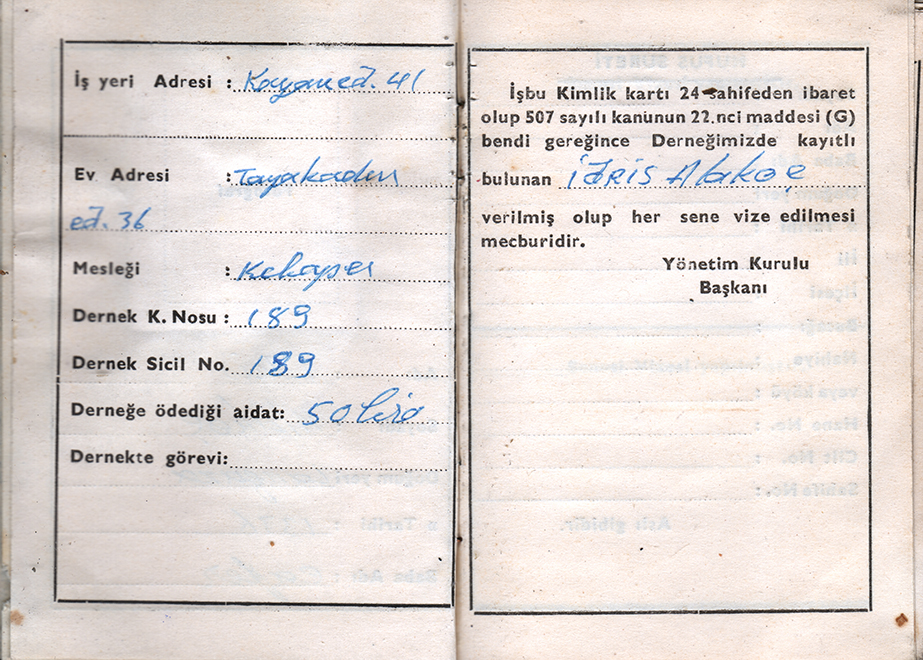 İş yeri Adresi : Kayam cd. 41
Ev Adresi : Tayakadın
cd. 36
Mesleği :
Dernek K. Nosu : 189
Dernek Sicil No. 189
Derneğe ödediği aidat: 50 lira
Dernekte görevi:
İşbu Kimlik kartı 24 sahifeden ibaret
olup 507 sayılı kanunun 22.nci maddesi (G)
bendi gereğince Derneğimizde kayıtlı
bulunan İdris Alakoç
verilmiş olup her sene vize edilmesi
mecburidir.
Yönetim Kurulu
Başkanı